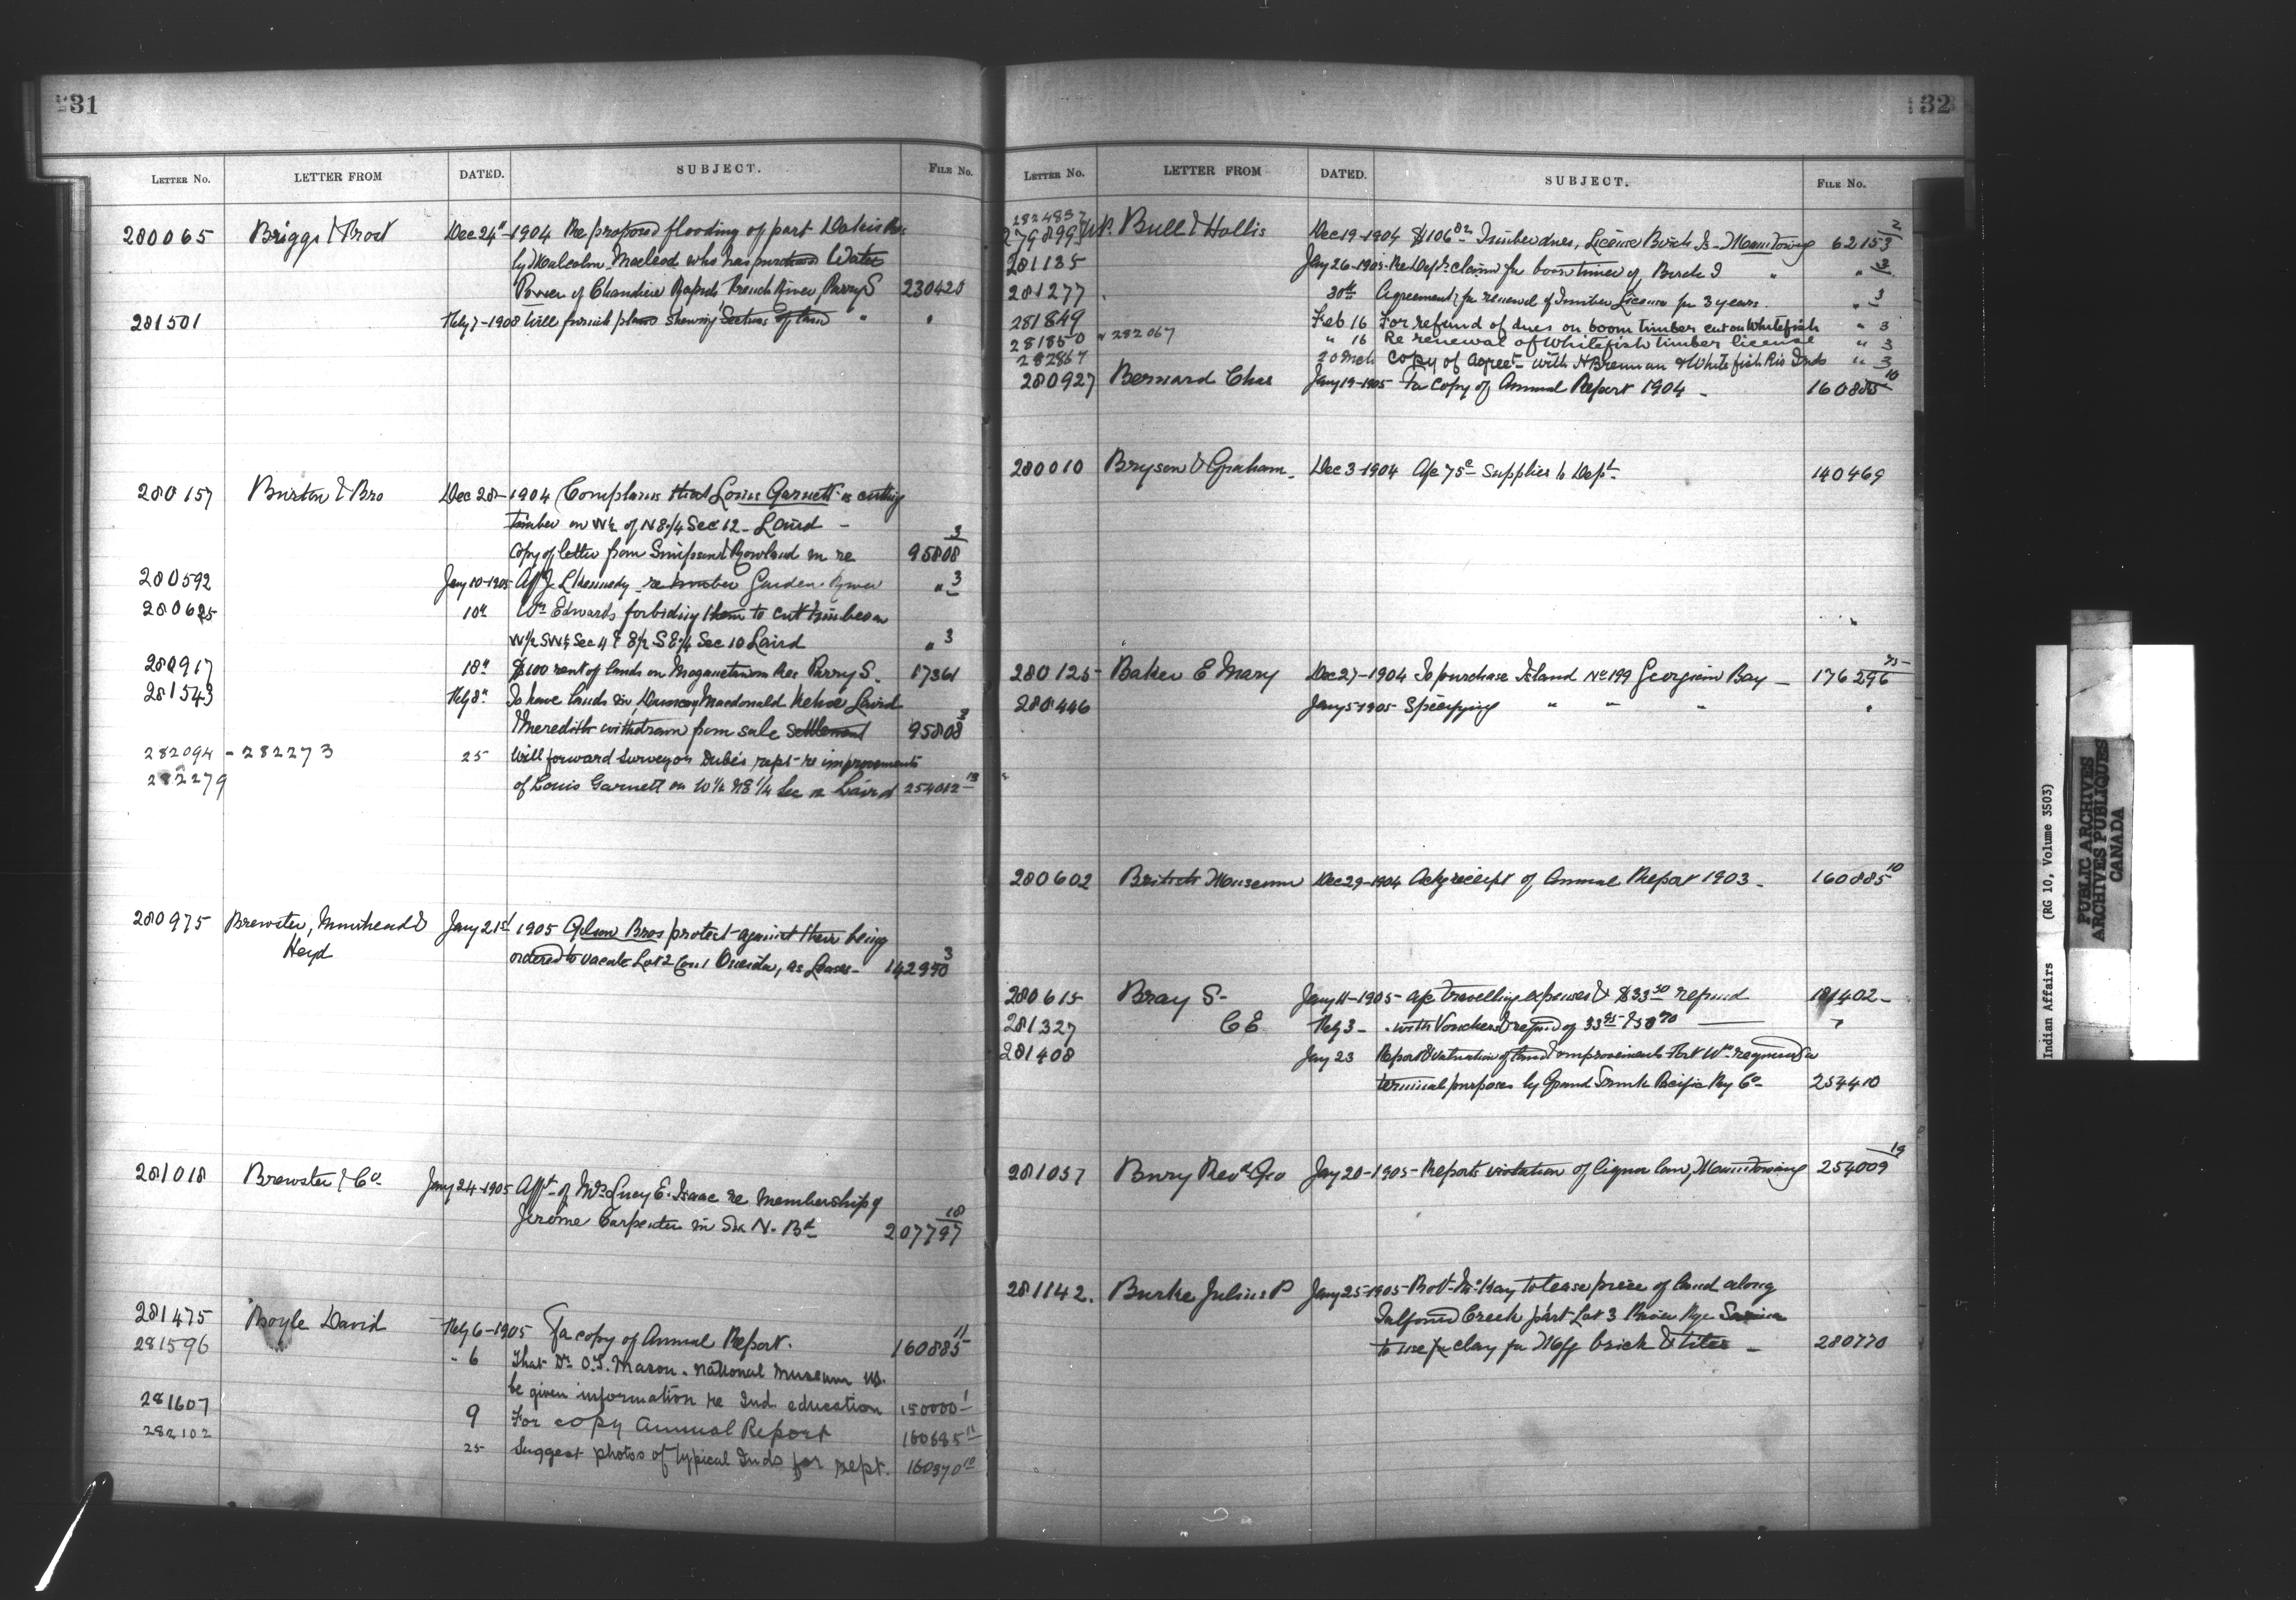 131
LETTER NO. LETTER FROM DATED. SUBJECT. FILE NO.
280065 Briggs & Frost Dec 24" 1904 Re proposed flooding of part Dokis Res
by Malcolm Macleod who has purchased Water
Power of Chaudiere Rapids, French River, Parry S 230420
281501 Feby 7-1905 Will furnish plans shewing Sections of land " "
280157 Burton & Bro Dec 28-1904 Complains that Louis Garnett is cutting
timber on W½ of N E ¼ Sec 12 - Laird -
Copy of letter from Simpson & Rowland in re 95808 3
280592 Jany 10-1905 Affdt J. L Kennedy re timber Garden River " 3
280625 10" Wm Edwards forbiding them to cut timber on
W½ SW¼ Sec 11 & E½ S E ¼ Sec 10 Laird " 3
280917 18" $100 rent of lands on Maganetawan Res Parry S. 17361
281543 Feby 8" To have lands in Duncan, Macdonald Kehoe Laird
& Meredith withdrawn from sale settlement 95808 3
282094 - 282273 25 Will forward Surveyor Dubé's rept re improvements
282279 of Louis Garnett on W½ NE ¼ Sec 12 Laird 254012 13
280975 Brewster, Muirhead & Jany 21st 1905 Gilson Bros protest against their being
Heyd ordered to vacate Lot 2 Con 1 Oneida, as Leases - 142950 3
281018 Brewster & Co. Jany 24-1905 Affdt of Mrs Lucy E. Isaac re Membership of
Jerome Carpenter in Six N. Bd 207797 18
281475 Boyle David Feby 6-1905 For copy of Annual Report. 160885 11
281596 " 6 That Dr O.T. Mason. National Museum US.
be given information re Ind. education 150000 1
281607 9 For copy Annual Report 160885 11
282102 25 Suggest photos of typical Inds for rept. 160370 10
132
LETTER NO. LETTER FROM DATED. SUBJECT. FILE NO.
282483
279899 W.P. Bull & Hollis Dec 19-1904 $106 82 Timber dues, License Birch Is - Manitowng 62153 2
281135 Jany 26-1905 Re Dept's claim for boom timber of Birch I " " 3
281277 30th Agreement for renewal of Timber License for 3 years. " 3
281849 Feb 16 For refund of dues on boom timber cut on Whitefish " 3
281850 " 282067 " 16 Re renewal of Whitefish timber license " 3
282867 20 Mch Copy of Agreet with H Brennan & Whitefish Riv Inds " 3
280927 Bernard Chas Jany 19-1905 For copy of Annual Report 1904 - 160885 10
280010 Bryson & Graham - Dec 3-1904 A/c 75c Supplies to Dept. 140469
280125 - Baker E Mary Dec 27-1904 To purchase Island No 199 Georgian Bay - 176296 75
280446 Jany 5-1905 Specifying " " " "
280602 British Museum Dec 29-1904 Ackg receipt of Annual Report 1903 - 160885 10
280615 Bray S- Jany 11-1905 - a/c travelling expenses & $33 50 refund 181402 -
281327 C E Feby 3 - " with Vouchers & refund of 33 95 & 50 70 "
281408 Jany 23 Report & valuation of land & improvements Fort Wm required for
terminal purposes by Grand Trunk Pacific Ry Co - 254410
281037 Bury Revd Geo Jany 20-1905 - Reports violation of liquor law, Manitowaning 254009 19
281142. Burke Julius P Jany 25-1905 - Robt McKay to lease piece of land along
Talfourd Creek part Lot 3 River Rge Sarnia
to use for clay for Mfg brick & tiles - 280770
Indian Affairs (RG 10, Volume 3503)
PUBLIC ARCHIVES
ARCHIVES PUBLIQUES
CANADA